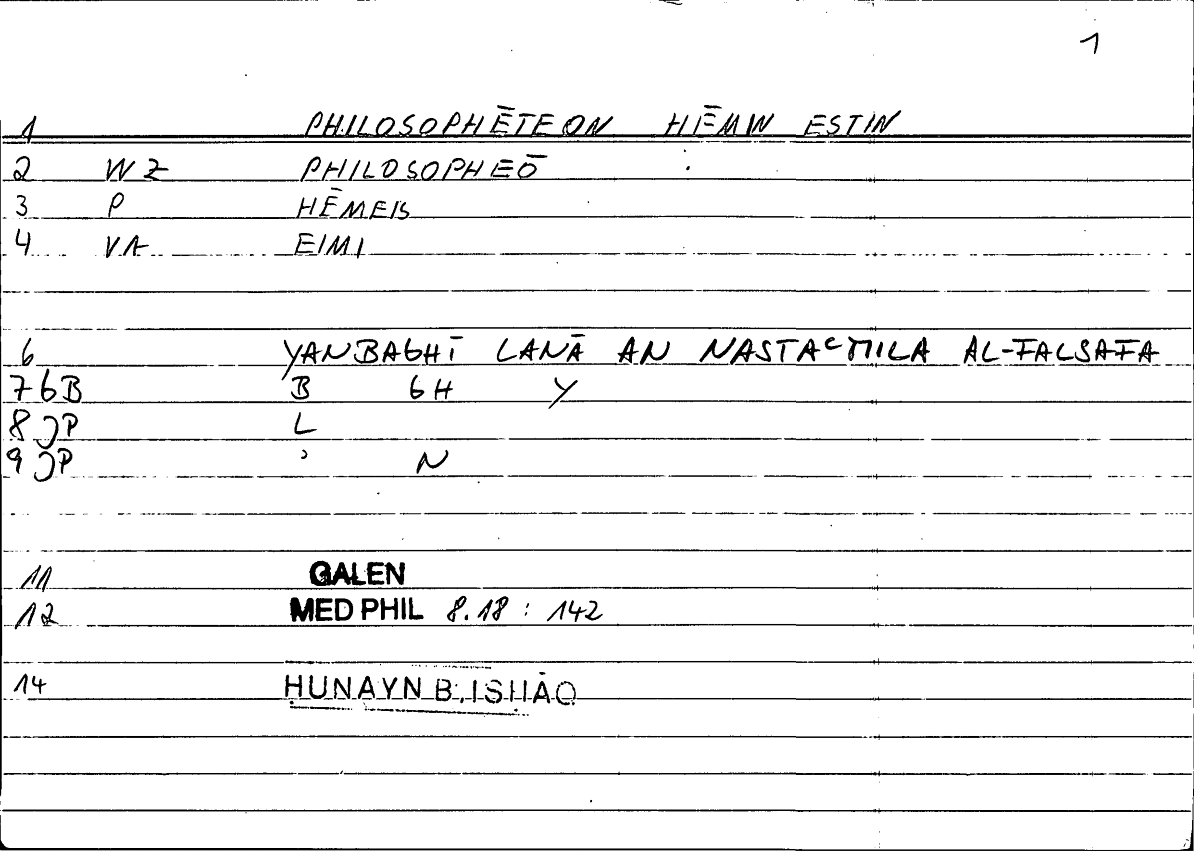 1
1 PHILOSOPHĒTEON HĒMIN ESTIN
2 WZ PHILOSOPHEŌ
3 P HĒMEIS
4 VA EIMI
6 YANBAGHĪ LANĀ AN NASTAʿMILA AL-FALSAFA
7 GB B GH Y
8 JP L
9 JP ʾ N
11 GALEN
12 MED PHIL 8.18 : 142
14 ḤUNAYN B. ISḤĀQ